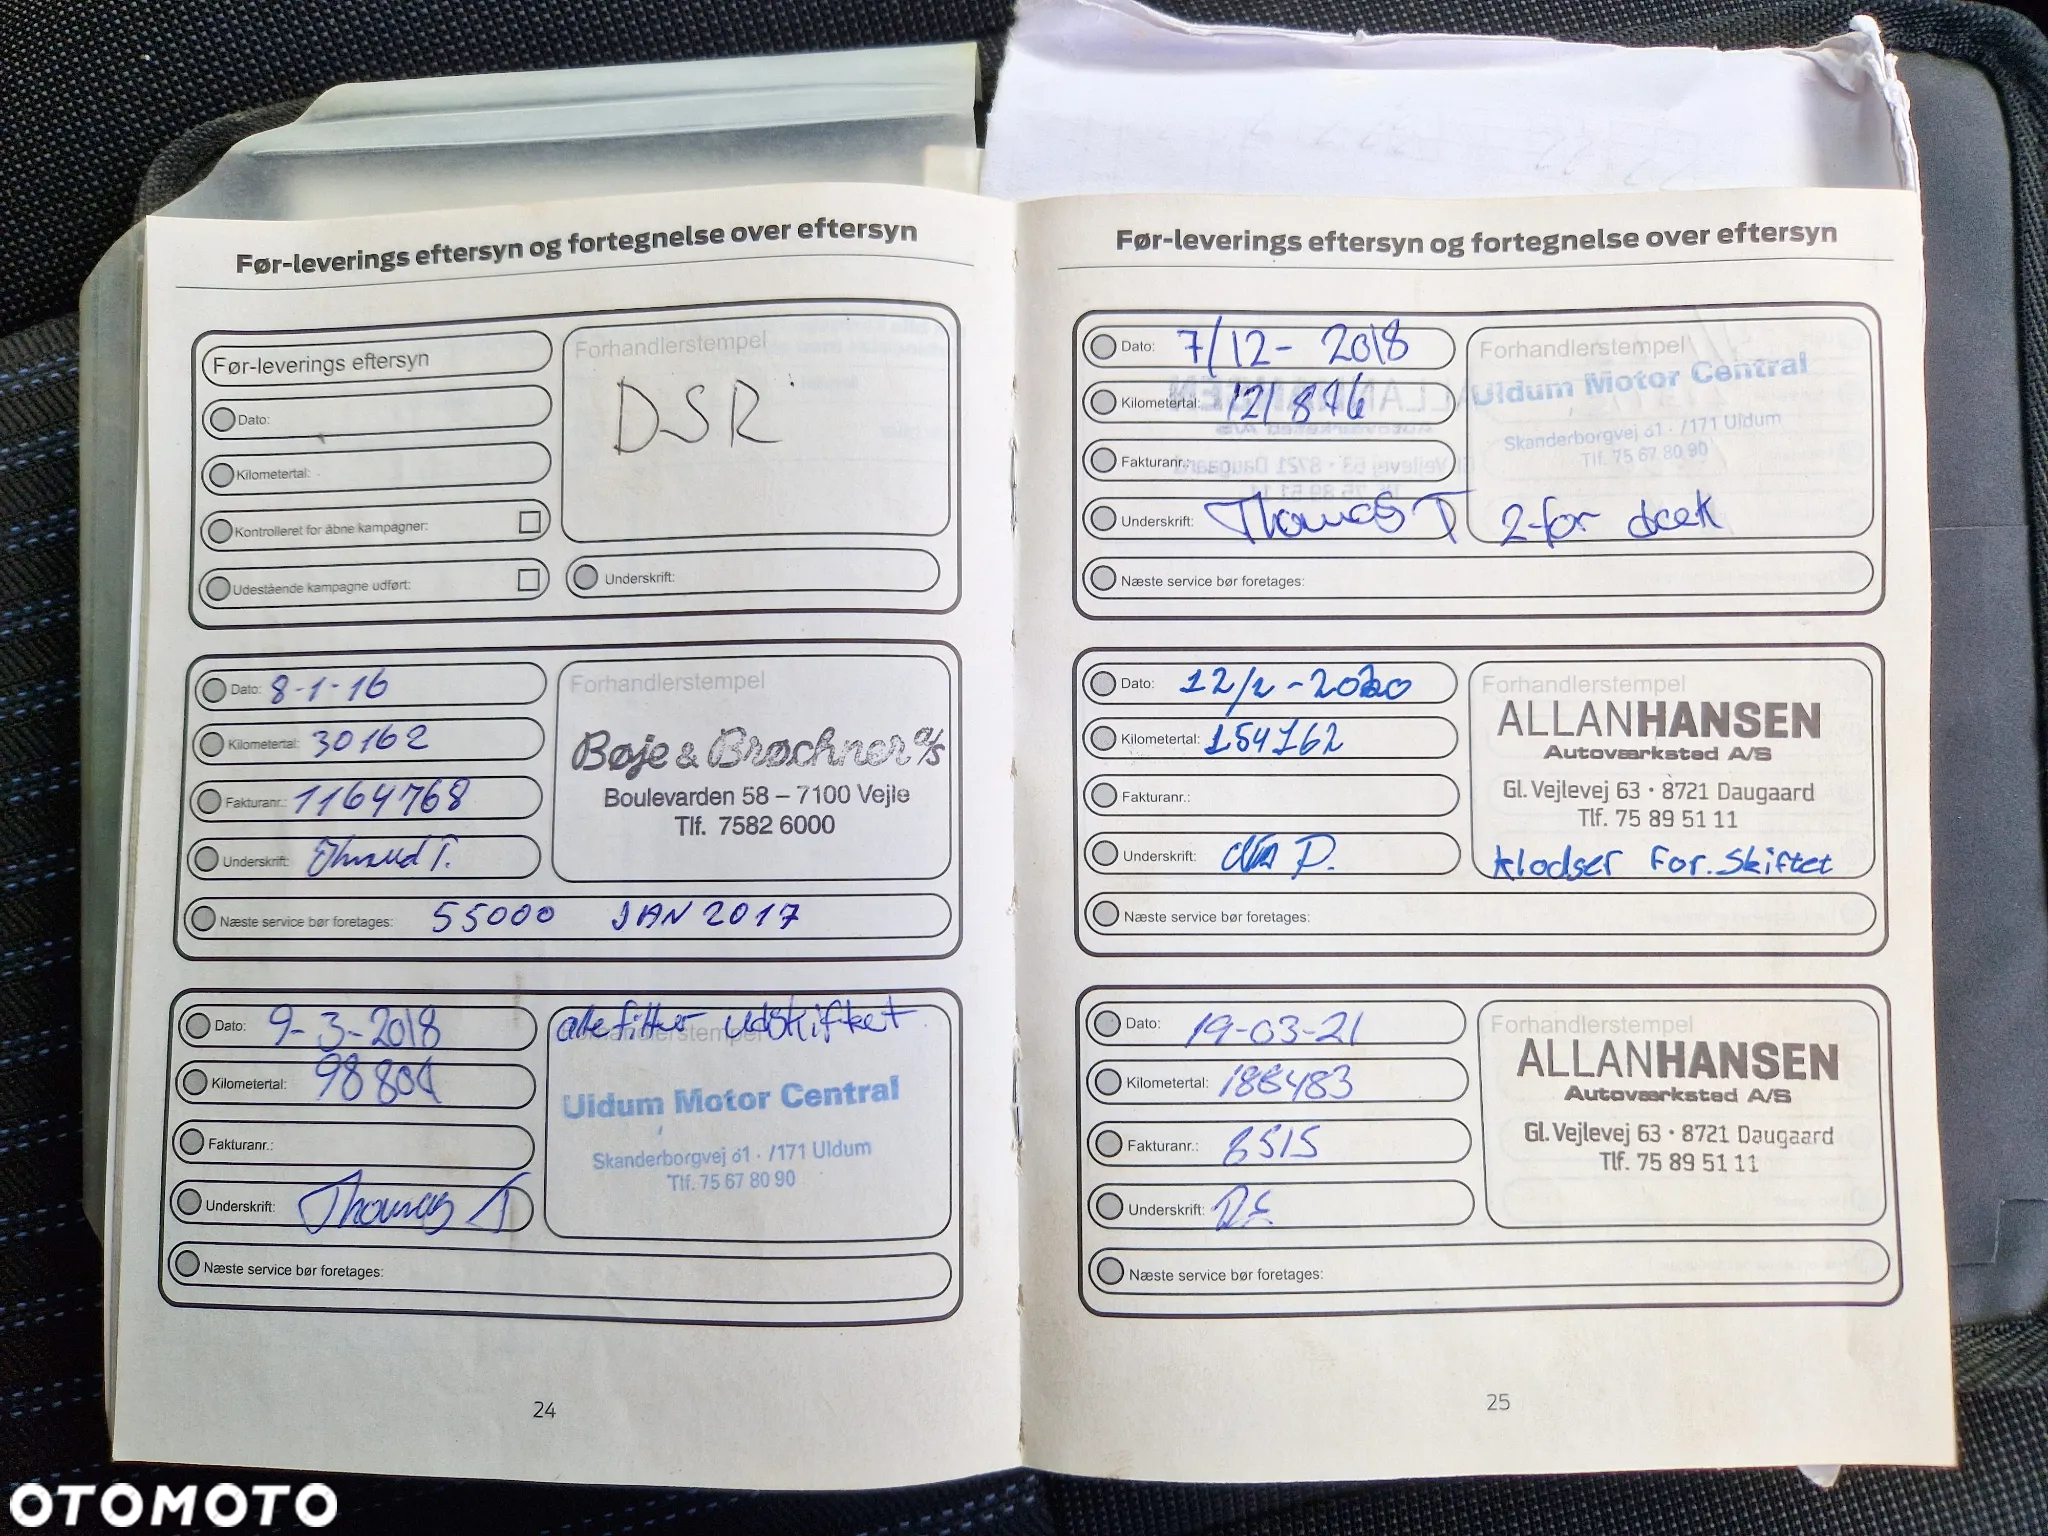 Før-leverings eftersyn og fortegnelse over eftersyn
Før-leverings eftersyn
Dato:
Kilometertal:
Kontrolleret for åbne kampagner:
Udestående kampagne udført:
Forhandlerstempel
DSR
Underskrift:
Dato: 8-1-16
Kilometertal: 30162
Fakturanr.: 1164768
Underskrift:
Forhandlerstempel
Bøje & Brøchner a/s
Boulevarden 58 – 7100 Vejle
Tlf. 7582 6000
Næste service bør foretages: 55000 JAN 2017
Dato: 9-3-2018
Kilometertal:
Fakturanr.:
Underskrift: Thomas T
alle filtter udskiftet
Forhandlerstempel
Uldum Motor Central
Skanderborgvej 61 · 7171 Uldum
Tlf. 75 67 80 90
Næste service bør foretages:
24
Før-leverings eftersyn og fortegnelse over eftersyn
Dato: 7/12-2018
Kilometertal: 121846
Fakturanr.:
Underskrift: Thomas T
Forhandlerstempel
Uldum Motor Central
Skanderborgvej 61 · 7171 Uldum
Tlf. 75 67 80 90
2-for dæk
Næste service bør foretages:
Dato: 12/2-2020
Kilometertal: 154762
Fakturanr.:
Underskrift:
Forhandlerstempel
ALLANHANSEN
Autoværksted A/S
Gl. Vejlevej 63 · 8721 Daugaard
Tlf. 75 89 51 11
Klodser For. Skiftet
Næste service bør foretages:
Dato: 19-03-21
Kilometertal: 186483
Fakturanr.: 8515
Underskrift:
Forhandlerstempel
ALLANHANSEN
Autoværksted A/S
Gl. Vejlevej 63 · 8721 Daugaard
Tlf. 75 89 51 11
Næste service bør foretages:
25
OTOMOTO